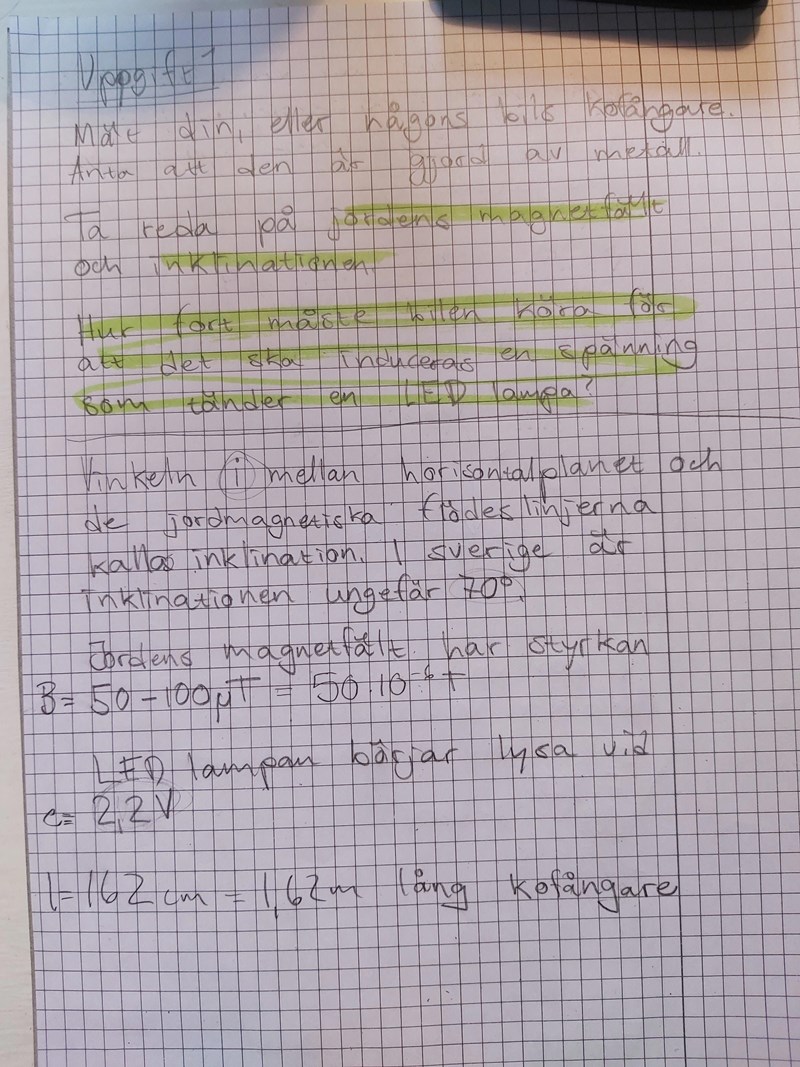 Uppgift 1
Mät din, eller någons bils kofångare.
Anta att den är gjord av metall.
Ta reda på jordens magnetfält
och inklinationen.
Hur fort måste bilen köra för
att det ska induceras en spänning
som tänder en LED lampa?
Vinkeln (i) mellan horisontalplanet och
de jordmagnetiska flödeslinjerna
kallas inklination. I sverige är
inklinationen ungefär 70°.
Jordens magnetfält har styrkan
B = 50 - 100 μT = 50·10⁻⁶ T
LED lampan bärjar lysa vid
e = 2,2 V
l = 162 cm = 1,62 m lång kofångare